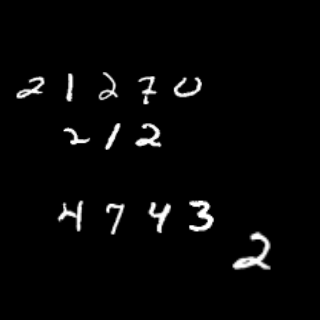 21270
212
4743
2